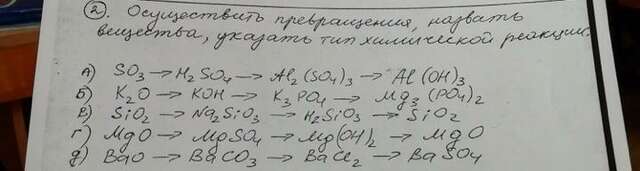 ②. Осуществить превращения, назвать
вещества, указать тип химической реакции:
А) SO₃ → H₂SO₄ → Al₂(SO₄)₃ → Al(OH)₃
Б) K₂O → KOH → K₃PO₄ → Mg₃(PO₄)₂
В) SiO₂ → Na₂SiO₃ → H₂SiO₃ → SiO₂
г) MgO → MgSO₄ → Mg(OH)₂ → MgO
д) BaO → BaCO₃ → BaCl₂ → BaSO₄